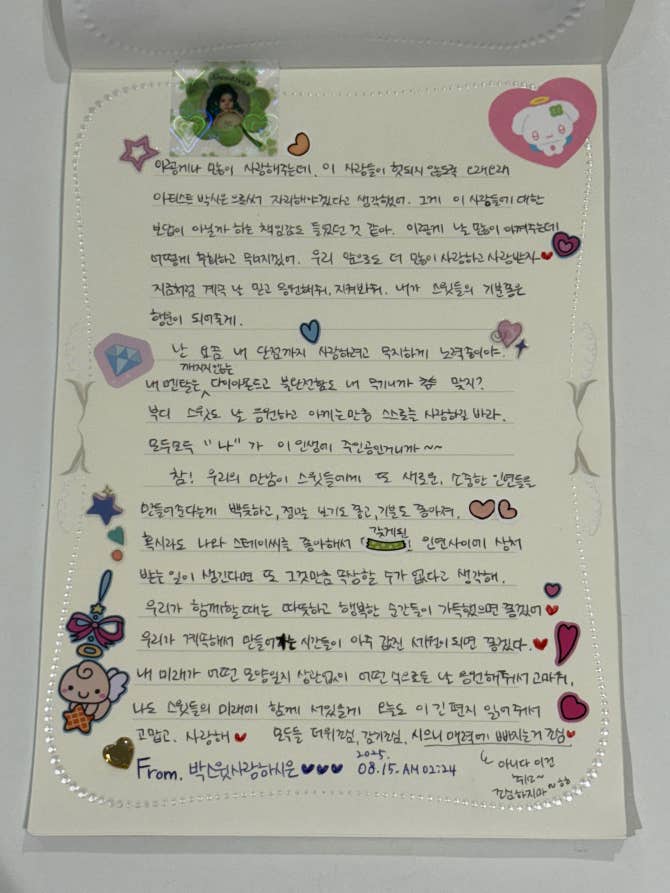 이렇게나 많이 사랑해주는데, 이 사람들이 헛되지 않도록 더더더더
아티스트 박시은으로써 자리해야겠다고 생각했어. 그게 이 사람들에 대한
보답이 아닐까 하는 책임감도 들었던 것 같아. 이렇게 날 많이 아껴주는데
어떻게 후회하고 무너지겠어. 우리 앞으로도 더 많이 사랑하고 사랑받자
지금처럼 계속 날 믿고 응원해줘, 지켜봐줘. 내가 스윗들의 기분좋은
행운이 되어줄게.
난 요즘 내 단점까지 사랑하려고 무지하게 노력중이야.
깨지지않는
내 멘탈은 다이아몬드고 불단전함도 내 무기니까 맞지?
부디 스윗도 날 응원하고 아끼는만큼 스스로를 사랑하길 바라.
모두모두 "나"가 이 인생에 주인공인거니까~~
참! 우리의 만남이 스윗들에게 또 새로운, 소중한 인연들을
만들어준다는게 뿌듯하고, 정말 보기도 좋고, 기분도 좋아져.
혹시라도 나와 스테이씨를 좋아해서 갖게된 인연사이에 상처
받는 일이 생긴다면 또 그것만큼 속상할 수가 없다고 생각해.
우리가 함께할 때는 따뜻하고 행복한 순간들이 가득했으면 좋겠어
우리가 계속해서 만들어가는 시간들이 아주 값진 세월이 되면 좋겠다.
내 미래가 어떤 모양일지 상관없이 어떤 식으로든 날 응원해줘서 고마워,
나도 스윗들의 미래에 함께 서있을게 오늘도 이 긴 편지 읽어줘서
고맙고. 사랑해 모두들 더위조심, 감기조심, 시으니 매력에 빠지는거 조심
아니다 이건
조심하지마~ㅎㅎ
From. 박스윗사랑하시은
2025.
08.15. AM 02:24